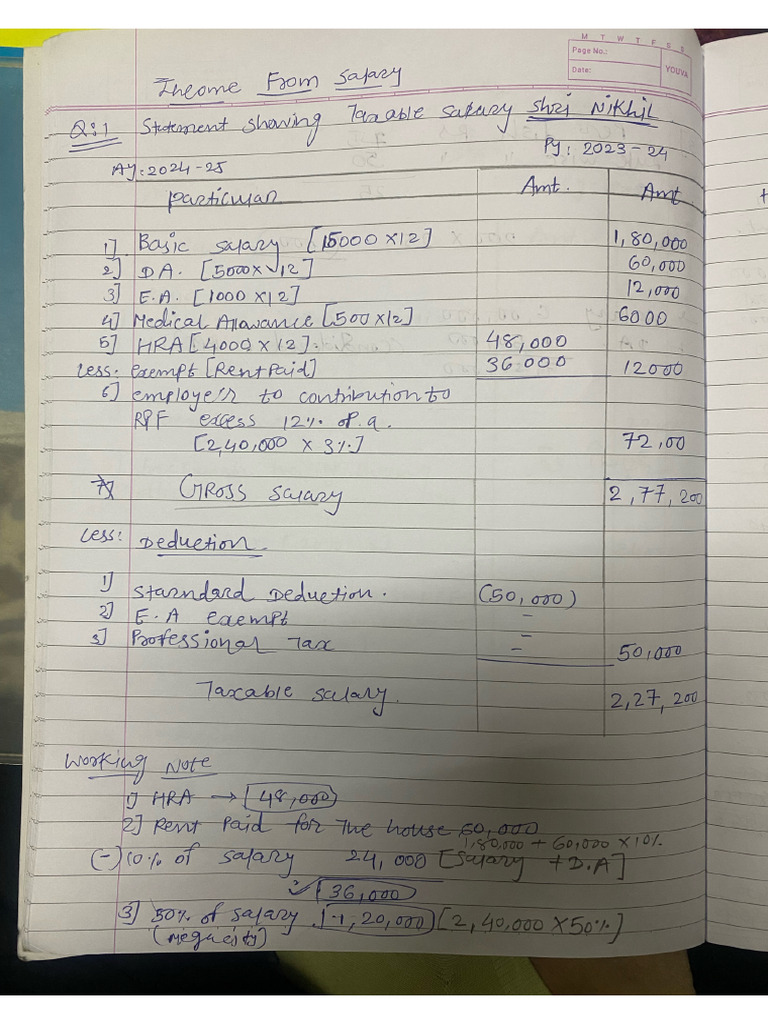 M T W T F S S
Page No.:
Date:
YOUVA
Income From Salary
Q:1 Statement showing Taxable salary Shri Nikhil
AY: 2024-25 Py: 2023-24
particular Amt. Amt
1] Basic salary [15000 X12] 1,80,000
2] D A. [5000 X 12] 60,000
3] E.A. [1000 X12] 12,000
4] Medical Allowance [500 X12] 6000
5] HRA [4000 X 12]. 48,000
Less: exempt [Rent Paid] 36000 12000
6] employe's to contribution to
RPF excess 12% of.a.
[2,40,000 X 3%] 72,00
7] GROSS salary 2,77,200
Less: Deduction
1] Starndard Deduction. (50,000)
2] E.A exempt -
3] Professional Tax - - 50,000
Taxable salary. 2,27,200
Working Note
1] HRA → 48,000
2] Rent Paid for The house 60,000
1,80,000 + 60,000 X10%
(-) 10% of salary 24,000 [Salary + D.A]
36,000
3] 50% of salary 1,20,000 [2,40,000 X50%]
(megacity)